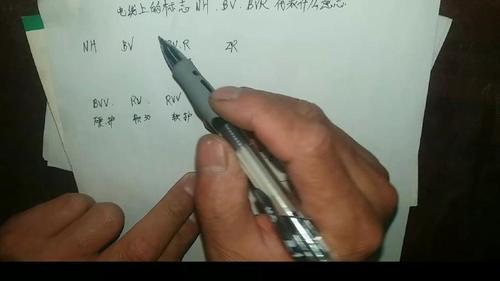 电线上的标志 NH. BV. BVR 代表什么意思
NH BV BVR ZR
BVV. RV. RVV
硬护 软 软护